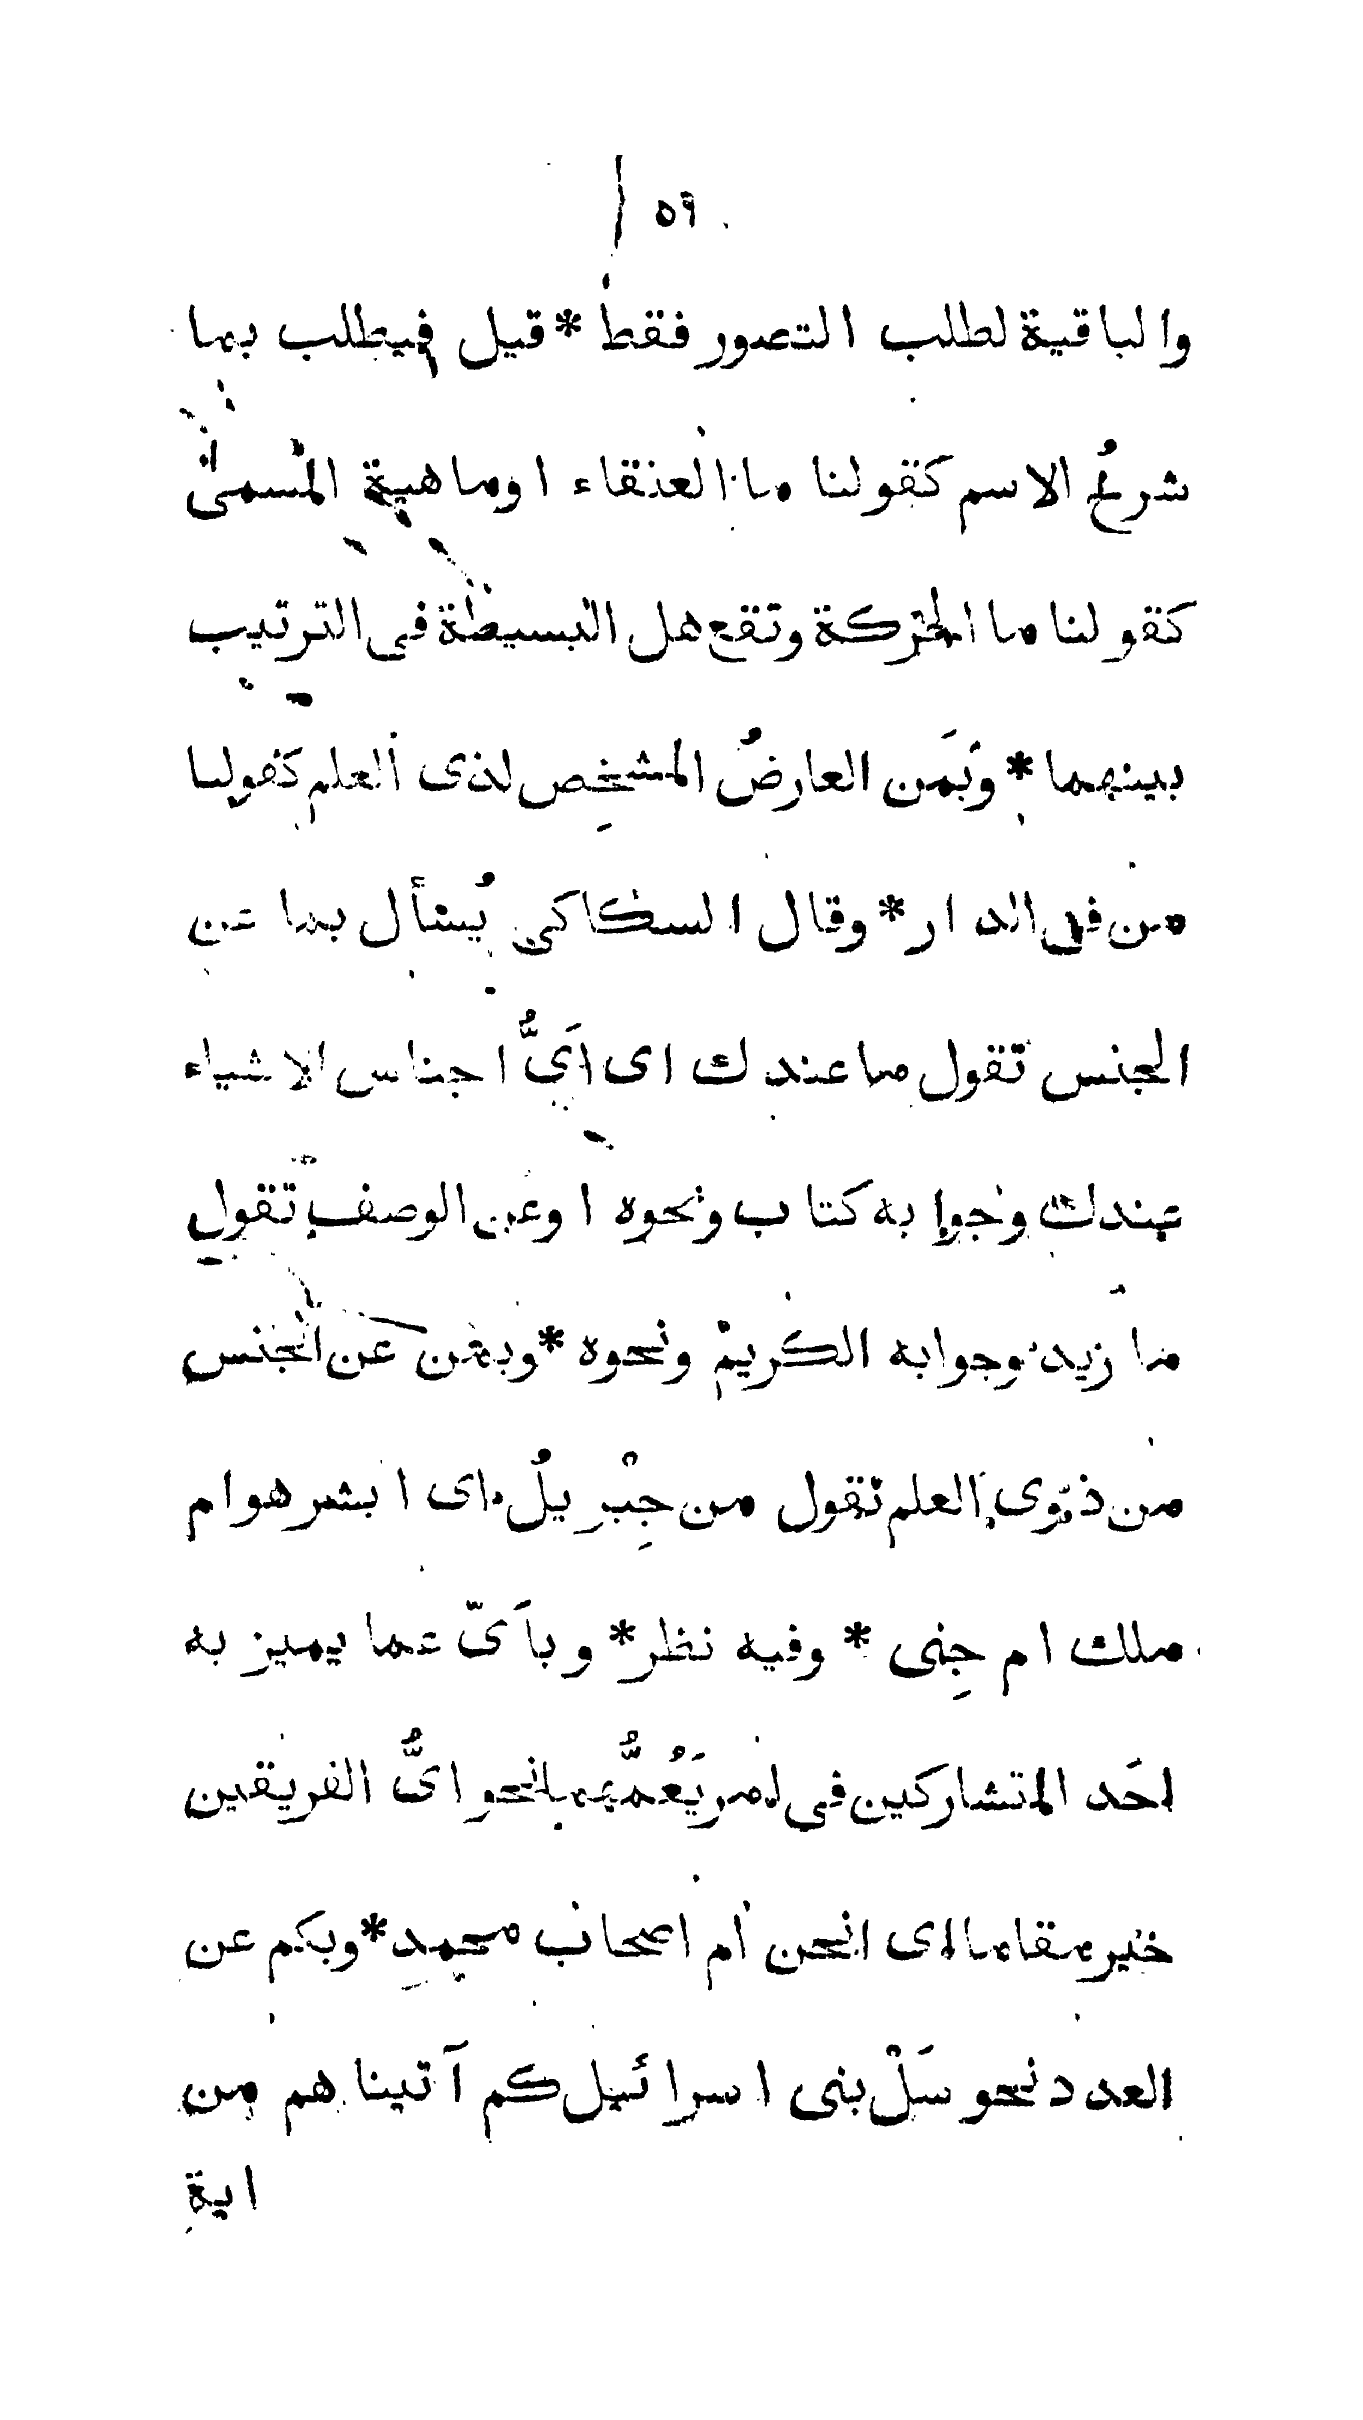 ٥٩
والباقية لطلب التصور فقط * قيل فيطلب بما
شرحُ الاسم كقولنا ما العنقاء او ماهية المسمى
كقولنا ما الحركة وتقع هل البسيطة في الترتيب
بينهما * وبمَن العارضُ المشخِص لذى العلم كقولنا
من فى الدار * وقال السكاكى يُسْأل بما عن
الجنس تقول ما عندك اى اَىُّ اجناس الاشياء
عندك وجوابه كتاب ونحوه او عن الوصف تقول
ما زيد وجوابه الكريم ونحوه * وبمن عن الجنس
من ذوى العلم تقول من جِبْريلُ اى ابشر هو ام
ملك ام جِنى * وفيه نظر * وباَىّ عما يميز به
احَد المتشاركين فى امر يَعُمُّهما نحو اىُّ الفريقين
خير مقاما اى انحن ام اصحاب محمدٍ * وبكم عن
العدد نحو سَلْ بنى اسرائيل كم آتيناهم من
اية